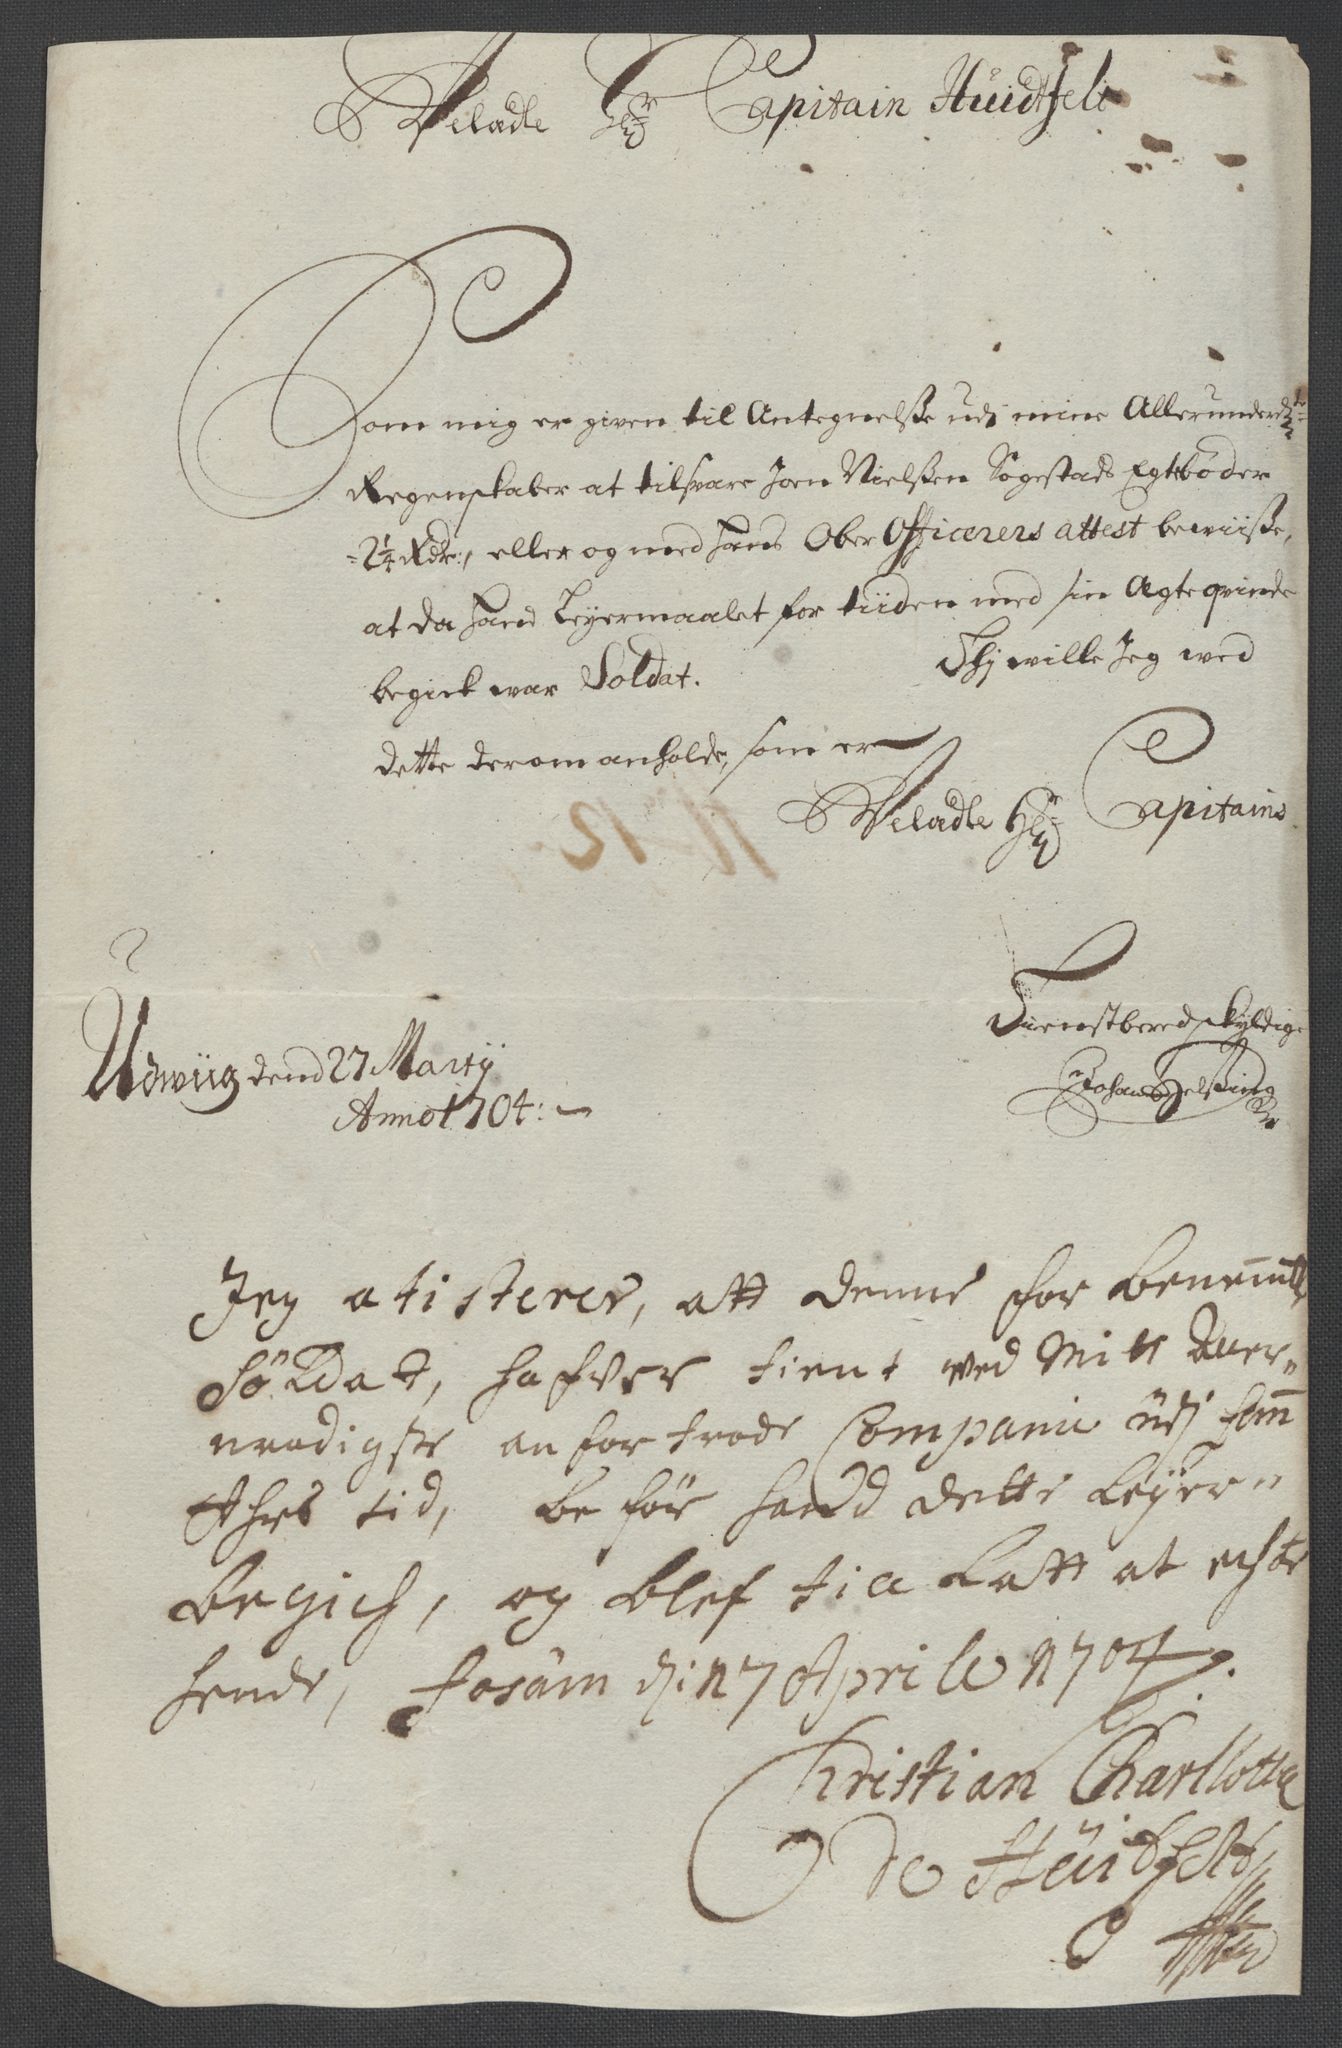 Weladle Hr Capitain Huidtfelt
Som mig er given til Antegnelsse udi mine Allerunderd:ste
Regenskaber at tilsvare Joen Nielssen Sogestads Egtebøder
2¼ Rdr:, eller og med hans Ober Officerers attest bewiisse,
at da hand Leyermaalet for tiiden med sin Agteqvinde
begick war Soldat. Thj wille Jeg wed
dette derom anholde, som er
Weladle Hr Capitains
Tienstberedskyldige
Johan Helssing
Udwiig dend 27 Martij
Anno 1704:
Jeg atisterer, att denne for benemte
Soldat, hafver tient ved Mitt Aller-
naadigste anfortrode Compani udj
tid, be för hand dette Leÿer-
begich, og blef tillatt at echte
hende, Fosam d: 17 Aprile 1704.
Christian Charllotte
De Hüitfelt